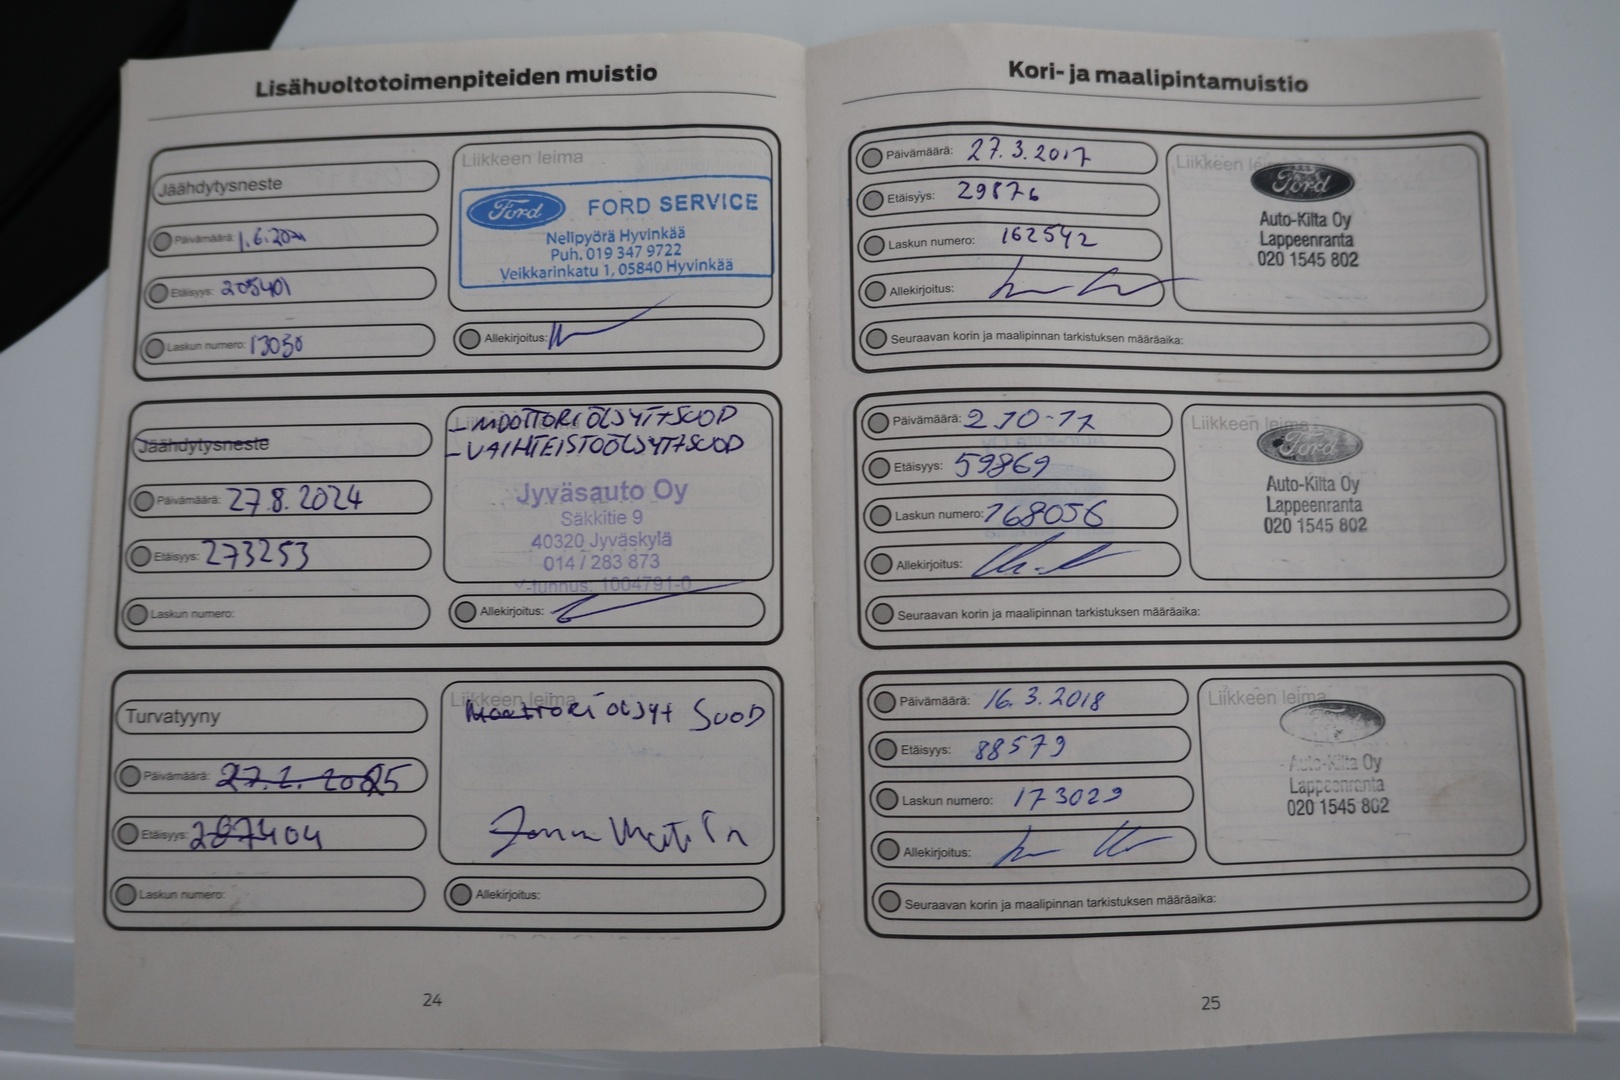 Lisähuoltotoimenpiteiden muistio
Jäähdytysneste
Päivämäärä: 1.6.2021
Etäisyys: 205401
Laskun numero: 13030
Liikkeen leima
Ford FORD SERVICE
Nelipyörä Hyvinkää
Puh. 019 347 9722
Veikkarinkatu 1, 05840 Hyvinkää
Allekirjoitus:
Jäähdytysneste
Päivämäärä: 27.8.2024
Etäisyys: 273253
Laskun numero:
Liikkeen leima
- MOOTTORIÖLJYT+SUOD
- VAIHTEISTOÖLJYT+SUOD
Jyväsauto Oy
Säkkitie 9
40320 Jyväskylä
014 / 283 873
Y-tunnus: 1004791-0
Allekirjoitus:
Turvatyyny
Päivämäärä: 27.2.2025
Etäisyys: 287404
Laskun numero:
Liikkeen leima
MOOTTORI ÖLJYT SUOD
Allekirjoitus:
24
Kori- ja maalipintamuistio
Päivämäärä: 27.3.2017
Etäisyys: 29876
Laskun numero: 162542
Allekirjoitus:
Liikkeen leima
Ford
Auto-Kilta Oy
Lappeenranta
020 1545 802
Seuraavan korin ja maalipinnan tarkistuksen määräaika:
Päivämäärä: 2.10-17
Etäisyys: 59869
Laskun numero: 168056
Allekirjoitus:
Liikkeen leima
Ford
Auto-Kilta Oy
Lappeenranta
020 1545 802
Seuraavan korin ja maalipinnan tarkistuksen määräaika:
Päivämäärä: 16.3.2018
Etäisyys: 88579
Laskun numero: 173029
Allekirjoitus:
Liikkeen leima
Auto-Kilta Oy
Lappeenranta
020 1545 802
Seuraavan korin ja maalipinnan tarkistuksen määräaika:
25